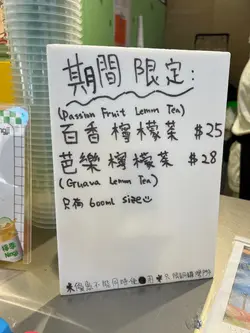 期間限定：
(Passion Fruit Lemon Tea)
百香檸檬茶 $25
芭樂檸檬茶 $28
(Guava Lemon Tea)
只有 600ml size
優惠不能同時使用